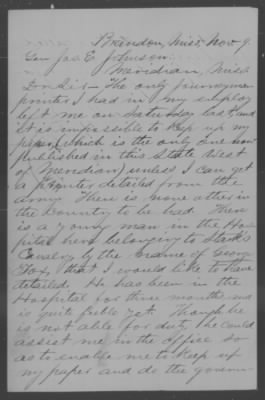 Brandon, Miss, Nov 9
Gen Jos. E. Johnson.
Meridian, Miss.
Dr Sir - The only journeyman
printer I had in my employ
left me on Saturday last, and
it is impossible to keep up my
paper (which is the only one now
published in this State West
of Meridian) unless I can get
a printer detailed from the
army. There is none other in
the County to be had. There
is a young man in the Hos-
pital here belonging to
Cavalry by the name of George
Fox, that I would like to have
detailed. He has been in the
Hospital for three months and
is quite feeble yet. Though he
is not able for duty, he could
assist me in the office so
as to enable me to keep up
my paper and do the govern-